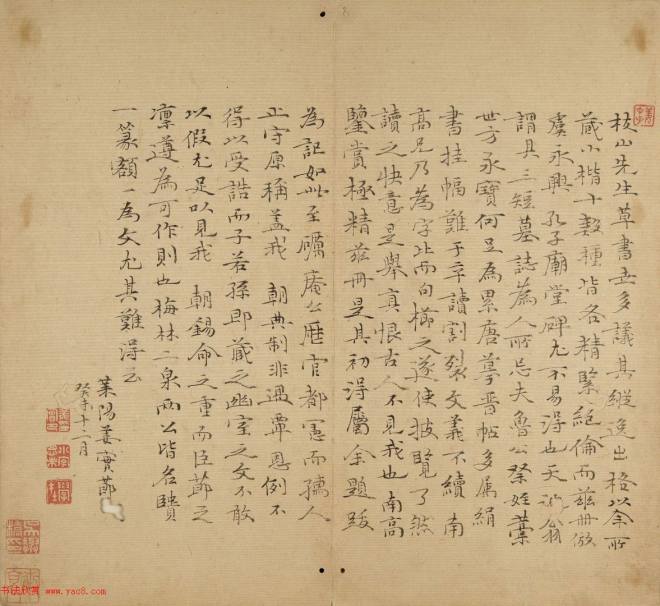 枝山先生草書世多議其縱逸出格以余所
藏小楷十數種皆各精緊絕倫而茲冊倣
虞永興孔子廟堂碑尤不易得也天 翁
謂其三短墓誌為人所忌夫魯公祭姪藁
世方永寶何足為累唐摹晉帖多屬絹
書挂幅難于卒讀割裂文義不續南
高兄乃為字比而句櫛之遂使披覽了然
讀之快意是舉真恨古人不見我也南高
鑒賞極精茲冊是其初得屬余題跋
為記如此至礪庵公歷官都憲而孺人
止守原稱蓋我 朝典制非遇覃恩例不
得以受誥而子若孫即藏之幽室之文不敢
以假尤足以見我 朝錫命之重而臣節之
凜遵為可作則也梅林二泉兩公皆名賢
一篆額一為文尤其難得云
萊陽姜實節
癸未十一月
书法欣赏 www.yac8.com